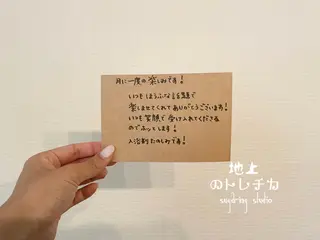 月に一度の楽しみです!
いつもほうふな話題で
楽しませてくれてありがとうございます!
いつも笑顔で受け入れてくださる
のでホッとします!
入浴剤たのしみです!
地上
のトレチカ
studio